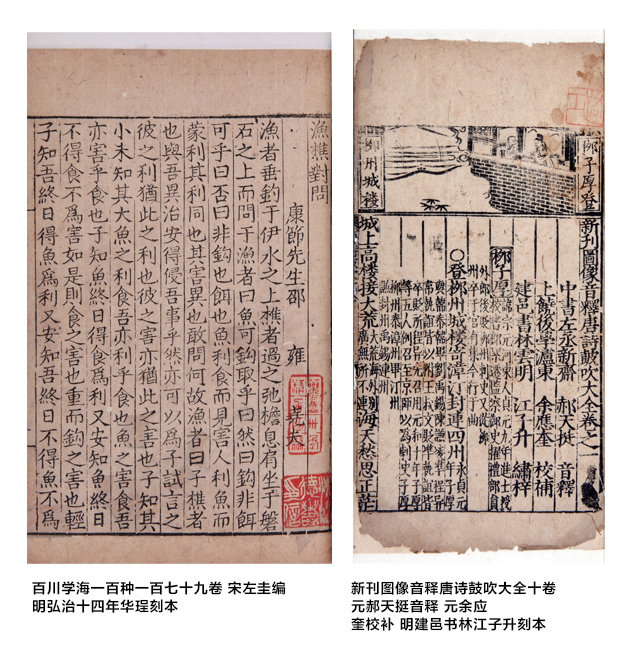 漁樵對問
康節先生邵 雍 堯夫
漁者垂釣于伊水之上樵者過之弛檐息肩坐于盤
石之上而問于漁者曰魚可鈎取乎曰然曰鈎非餌
可乎曰否曰非鈎也餌也魚利食而見害人利魚而
蒙利其利同也其害異也敢問何故漁者曰子樵者
也與吾異治安得侵吾事乎然亦可以為子試言之
彼之利猶此之利也彼之害亦猶此之害也子知其
小未知其大魚之利食吾亦利乎食也魚之害食吾
亦害乎食也子知魚終日得食為利又安知魚終日
不得食不為害如是則食之害也重而鈎之害也輕
子知吾終日得魚為利又安知吾終日不得魚不為
柳子厚登
柳州城楼
新刊圖像音釋唐詩鼓吹大全卷之一
中書左丞新齋 郝天挺 音釋
上饒後學滬東 余應奎 校補
建邑書林雲明 江子升 繡梓
柳子厚
○登柳州城楼寄漳汀封連四州
城上高楼接大荒 海天愁思正茫
百川学海一百种一百七十九卷 宋左圭编
明弘治十四年华珵刻本
新刊图像音释唐诗鼓吹大全十卷
元郝天挺音释 元余应
奎校补 明建邑书林江子升刻本